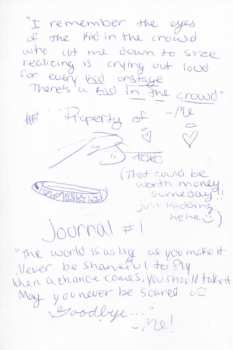 "I remember the eyes
of the kid in the crowd
who cut me down to size
realizing is crying out loud
for every kid onstage
There's a kid in the crowd"
-Me
Property of
(That could be
worth money
someday!!
just kidding
hehe :)
Journal #1
"The world is as big as you make it
Never be shameful to fly
When a chance comes, you should take it
May you never be scared
Goodbye...."
-Me!